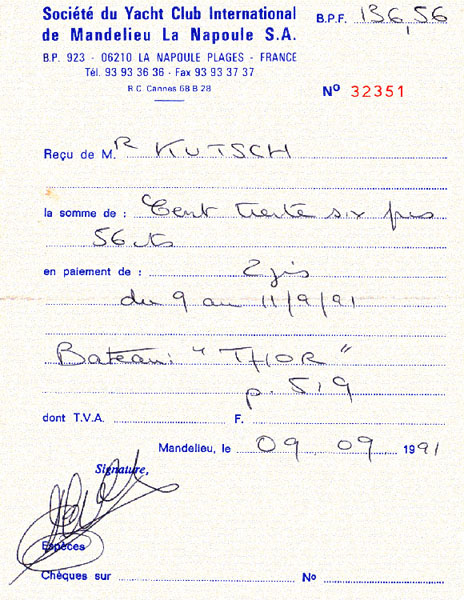 Société du Yacht Club International B.P.F. 136,56
de Mandelieu La Napoule S.A.
B.P. 923 - 06210 LA NAPOULE PLAGES - FRANCE
Tél. 93 93 36 36 - Fax 93 93 37 37
R.C. Cannes 68 B 28 N° 32351
Reçu de M R KUTSCH
la somme de : Cent trente six frs
56 cts
en paiement de : 2 jrs
du 9 au 11/9/91
Bateau : "THOR"
p. 519
dont T.V.A. F.
Mandelieu, le 09 09 1991
Signature,
Espèces
Chèques sur N°